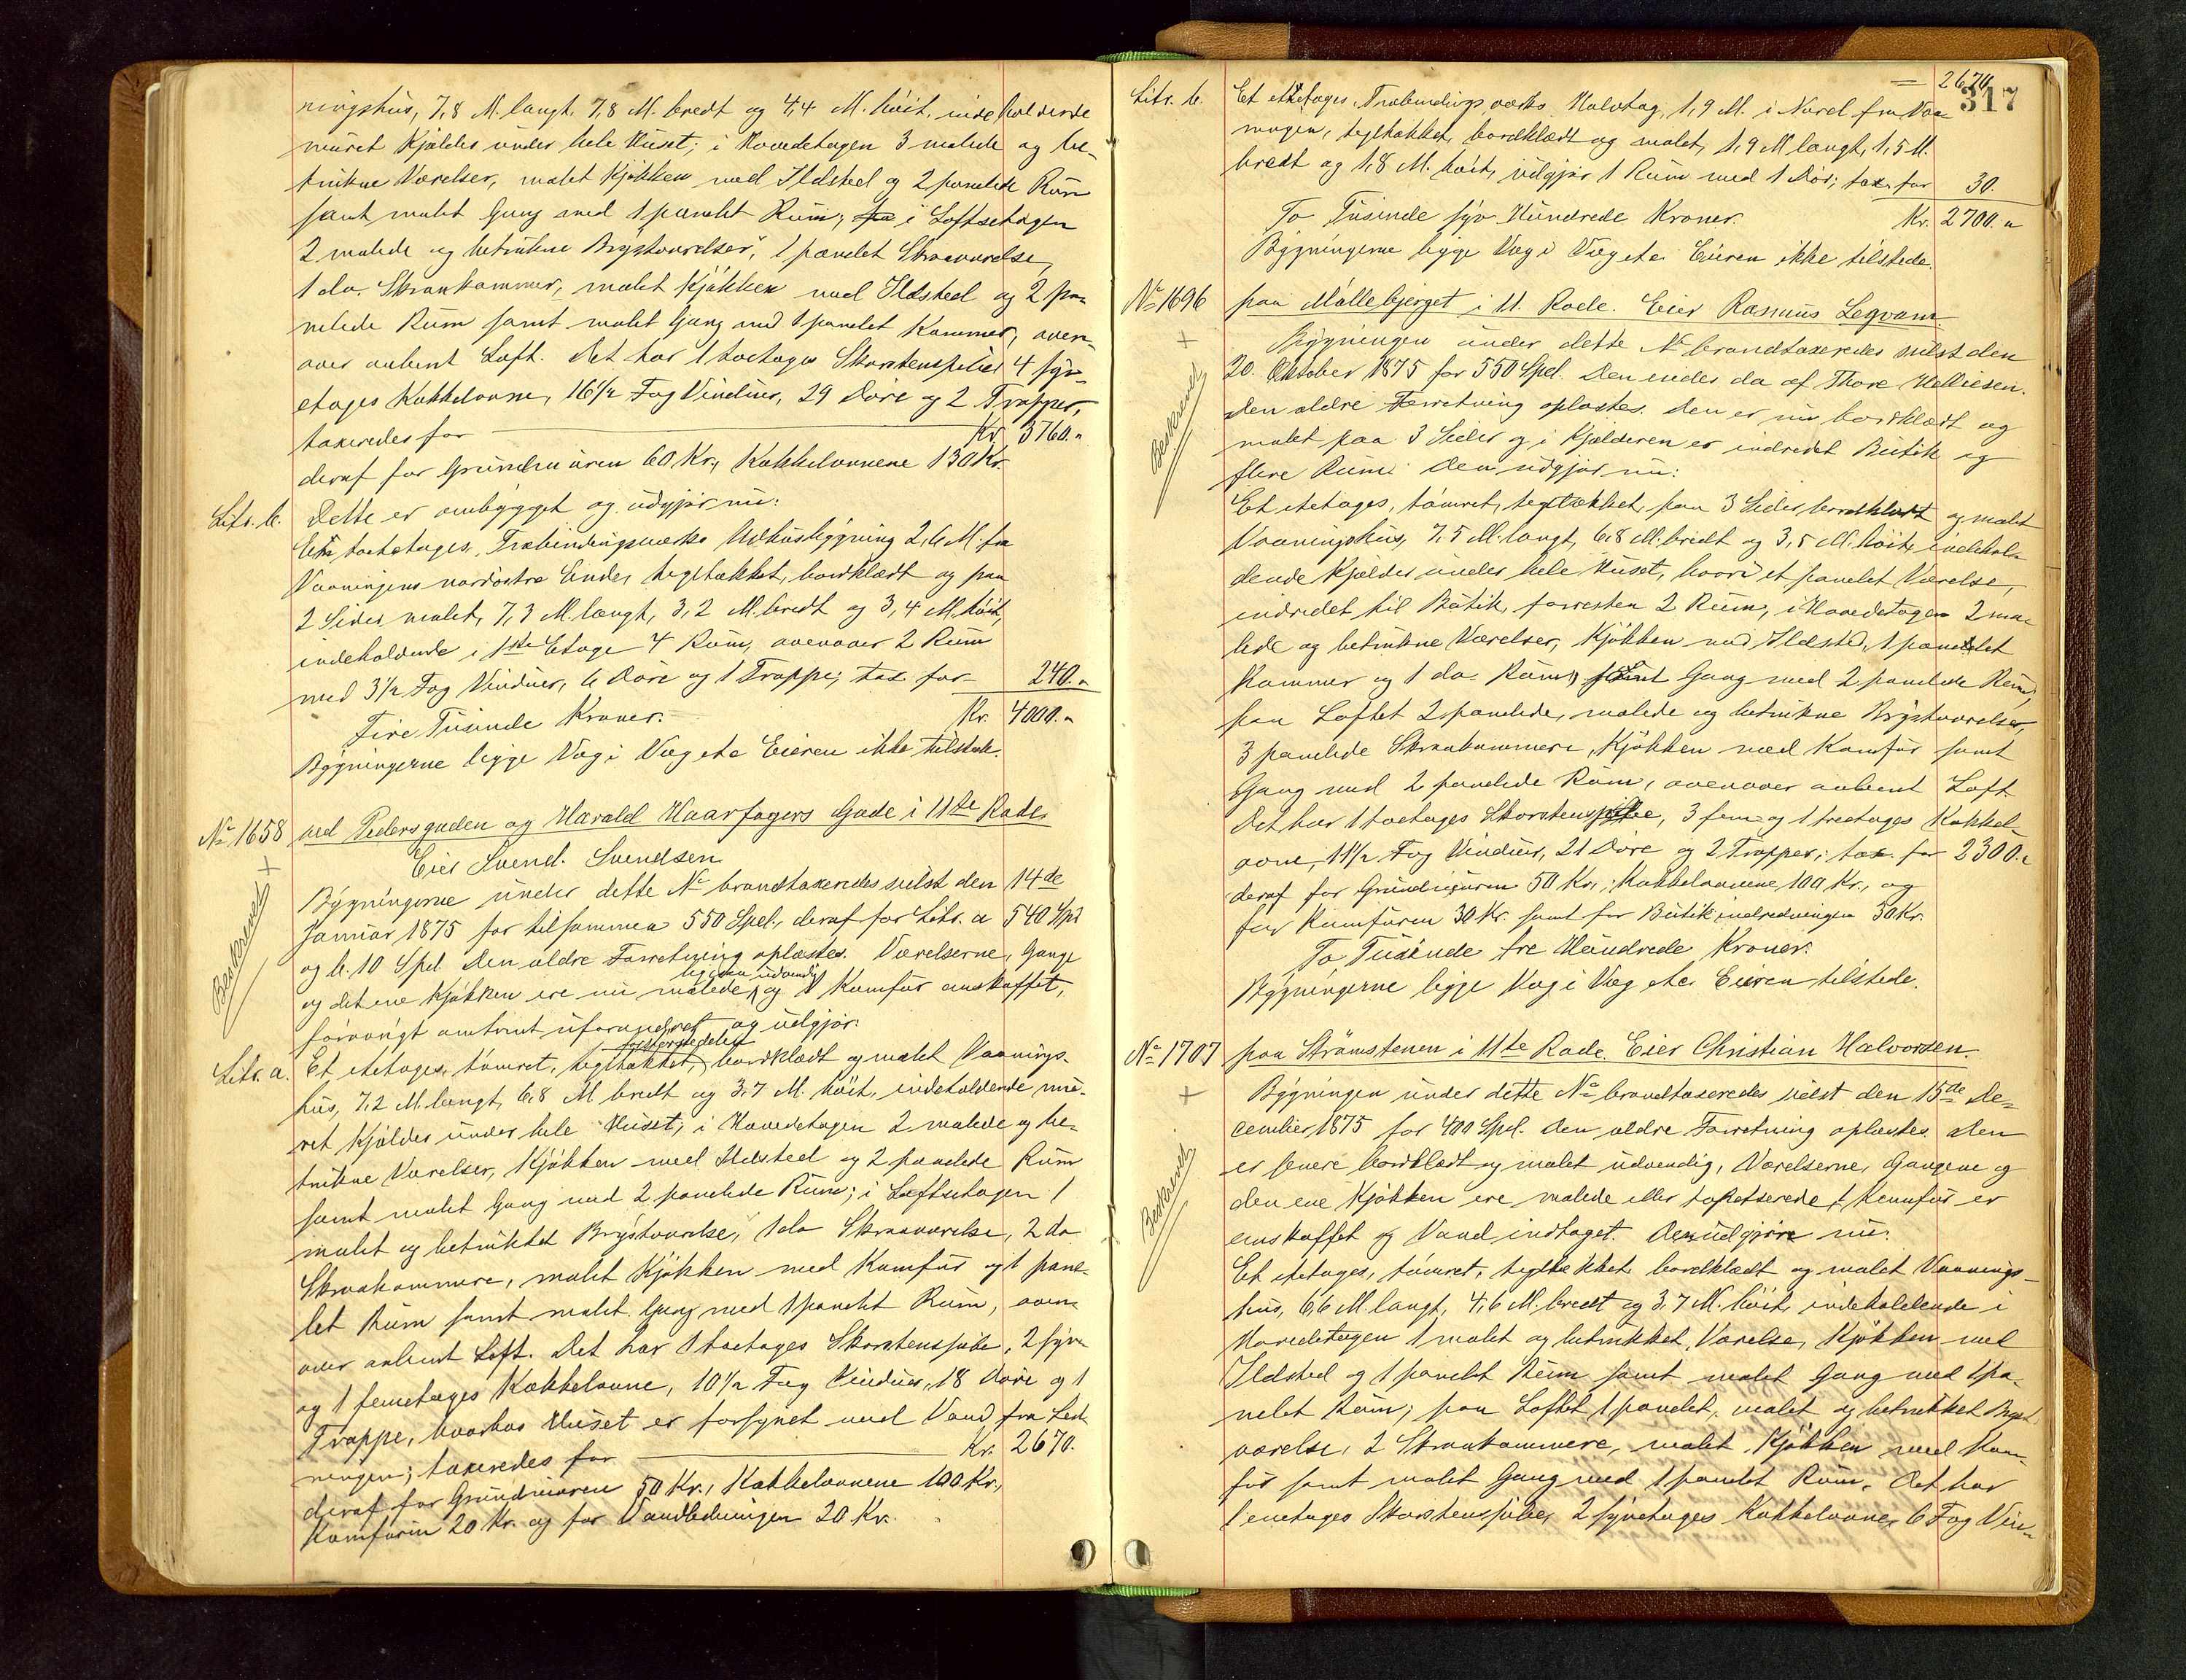 ningshus, 7,8 M. langt, 7,8 M. bredt og 4,4 M. höit, indeholdende
muret Kjælder under hele Huset; i Hovedetagen 3 malede og be-
trukne Værelser, malet Kjökken med Ildsted og 2 panelede Rum
samt malet Gang med 1 panelet Rum; i Loftsetagen
2 malede og betrukne Brystværelser, 1 panelet Skraaværelse,
1 do. Skraakammer, malet Kjökken med Ildsted og 2 pa-
nelede Rum samt malet Gang med 1 panelet Kammer, oven-
over aabent Loft. Det har 1 toetages Skorstenspibe, 4 syv-
etages Kakkelovne, 16½ Fag Vinduer, 29 Döre og 2 Trapper,
taxeredes for Kr. 3760.
deraf for Grundmuren 60 Kr., Kakkelovnene 130 Kr.
Litr. b. Dette er ombygget og udgjör nu:
En toetages, Træbindingsværks Udhusbygning 2,6 M. fra
Vaaningens nordöstre Ende, tegltækket, bordklædt og paa
2 Sider malet, 7,3 M. langt, 3,2 M. bredt og 3,4 M. höit,
indeholdende i 1ste Etage 4 Rum, ovenover 2 Rum
med 3½ Fag Vinduer, 6 Döre og 1 Trappe; tax. for 240.
Fire Tusinde Kroner. Kr. 4000.
Bygningerne ligge Væg i Væg etc. Eieren ikke tilstede.
No 1658 ved Pedersgaden og Harald Haarfagers Gade i 11te Rode.
Eier Svend Svendsen
Bekræftet
+
Bygningerne under dette No brandtaxeredes sidst den 14de
Januar 1875 for tilsammen 550 Spd., deraf for Litr. a 540 Spd
og b. 10 Spd. Den ældre Forretning oplæstes. Værelserne, Gange
ligesaa udvendig
og det ene Kjökken ere nu malede, og 1 Komfur anskaffet,
forövrigt omtrent uforandret og udgjör:
Litr. a. Et etetages, tömret, tegltækket, bordklædt og malet Vaanings-
hus, 7,2 M. langt, 6,8 M. bredt og 3,7 M. höit, indeholdende mu-
ret Kjælder under hele Huset; i Hovedetagen 2 malede og be-
trukne Værelser, Kjökken med Ildsted og 2 panelede Rum
samt malet Gang med 2 panelede Rum; i Loftsetagen 1
malet og betrukket Brystværelse, 1 do Skraaværelse, 2 do
Skraakammere, malet Kjökken med Komfur og 1 pane-
let Rum samt malet Gang med 1 panelet Rum, oven-
over aabent Loft. Det har 1 toetages Skorstenspibe, 2 syv-
og 1 femetages Kakkelovne, 10½ Fag Vinduer, 18 Döre og 1
Trappe, hvorhos Huset er forsynet med Vand fra Led-
ningen; taxeredes for Kr. 2670.
deraf for Grundmuren 50 Kr., Kakkelovnene 100 Kr.,
Komfuren 20 Kr. og for Vandledningen 20 Kr.
317
2670
Litr. b. Et etetages, Træbindingsværks Halvtag, 1,9 M. i Nord fra Vaa-
ningen, tegltækket, bordklædt og malet, 1,9 M langt, 1,5 M.
bredt og 1,8 M. höit, udgjör 1 Rum med 1 Dör; tax. for 30.
To Tusinde syv Hundrede Kroner. Kr. 2700.
Bygningerne ligge Væg i Væg etc. Eieren ikke tilstede.
No 1696 paa Möllebjerget i 11. Rode. Eier Rasmus Legvam.
+
Bekræftet
Bygningen under dette No brandtaxeredes sidst den
20. Oktober 1875 for 550 Spd. Den eiedes da af Thore Helliesen.
Den ældre Forretning oplæstes. Den er nu bordklædt og
malet paa 3 Sider og i Kjælderen er indredet Butik og
flere Rum. Den udgjör nu:
Et etetages, tömret, tegltækket, paa 3 Sider bordklædt og malet
Vaaningshus, 7,5 M. langt, 6,8 M. bredt og 3,5 M. höit, indehol-
dende Kjælder under hele Huset, hvori et panelet Værelse,
indredet til Butik, forresten 2 Rum, i Hovedetagen 2 ma-
lede og betrukne Værelser, Kjökken med Ildsted, 1 panelet
Kammer og 1 do. Rum, samt Gang med 2 panelede Rum,
paa Loftet 2 panelede, malede og betrukne Brystværelser,
3 panelede Skraakammere, Kjökken med Komfur samt
Gang med 2 panelede Rum, ovenover aabent Loft.
Det har 1 toetages Skorstenspibe, 3 fem- og 1 treetages Kakkel-
ovne, 11½ Fag Vinduer, 21 Döre og 2 Trapper; tax. for 2300.
deraf for Grundmuren 50 Kr., Kakkelovnene 100 Kr., og
for Komfuren 30 Kr. samt for Butikindredningen 30 Kr.
To Tusinde tre Hundrede Kroner.
Bygningerne ligge Væg i Væg etc. Eieren tilstede.
No 1707 paa Strömstenen i 11te Rode. Eier Christian Halvorsen.
+
Bekræftet
Bygningen under dette No brandtaxeredes sidst den 15de De-
cember 1875 for 400 Spd. Den ældre Forretning oplæstes. Den
er senere bordklædt og malet udvendig, Værelserne, Gangene og
den ene Kjökken ere malede eller tapetserede, 1 Komfur er
anskaffet og Vand indtaget. Den udgjör nu:
Et etetages, tömret, tegltækket, bordklædt og malet Vaanings-
hus, 6,6 M. langt, 4,6 M. bredt og 3,7 M. höit, indeholdende i
Hovedetagen 1 malet og betrukket Værelse, Kjökken med
Ildsted og 1 panelet Rum samt malet Gang med 1 pa-
nelet Rum; paa Loftet 1 panelet, malet og betrukket Bryst-
værelse, 2 Skraakammere, malet Kjökken med Kom-
fur samt malet Gang med 1 panelet Rum. Det har
1 enetages Skorstenspibe, 2 syvetages Kakkelovne, 6 Fag Vin-